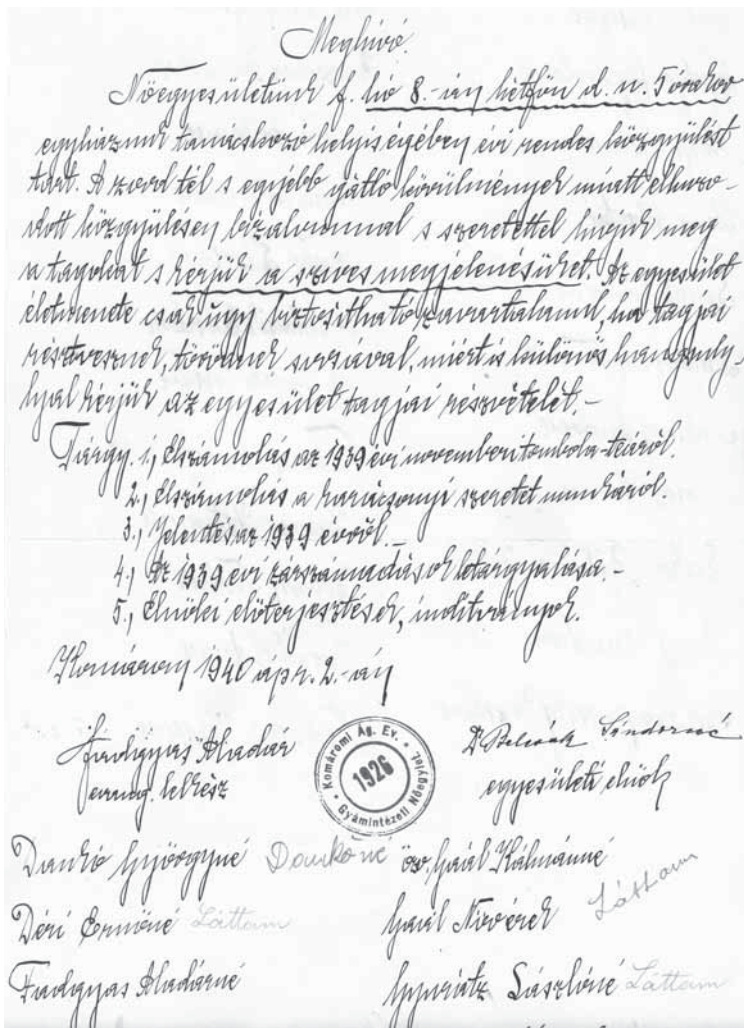 Meghívó.
Nőegyesületünk f. hó 8.-án hétfőn d. u. 5 órakor
egyházunk tanácskozó helyiségében évi rendes közgyűlést
tart. A zord tél s egyébb gátló körülmények miatt elhuzo-
dott közgyűlésen bizalommal s szeretettel hívjuk meg
a tagokat s kérjük a szíves megjelenésüket. Az egyesület
életmenete csak úgy biztosítható zavartalanul, ha tagjai
résztvesznek, törődnek sorsával, miért is különös hangsuly-
lyal kérjük az egyesület tagjai részvételét.-
Tárgy. 1., Elszámolás az 1939 évi novemberi tombola-teáról.
2., Elszámolás a karácsonyi szeretet munkáról.
3., Jelentés az 1939 évről.-
4., Az 1939 évi zárszámadások letárgyalása.-
5., Elnöki előterjesztések, indítványok.
Komárom 1940 ápr. 2.-án
Fadgyas Aladár
evang. lelkész
Komáromi Ág. Ev. Gyámintézeti Nőegylet
1926
Dr Sándorné
egyesületi elnök
Dankó Györgyné Dankóné özv. Gaál Kálmánné
Déri Ernőné Láttam Gaál Nővérek Láttam
Fadgyas Aladárné Gyurátz Lászlóné Láttam